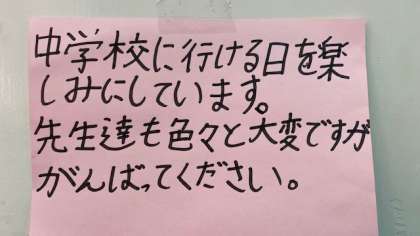 中学校に行ける日を楽
しみにしています。
先生達も色々と大変ですが
がんばってください。